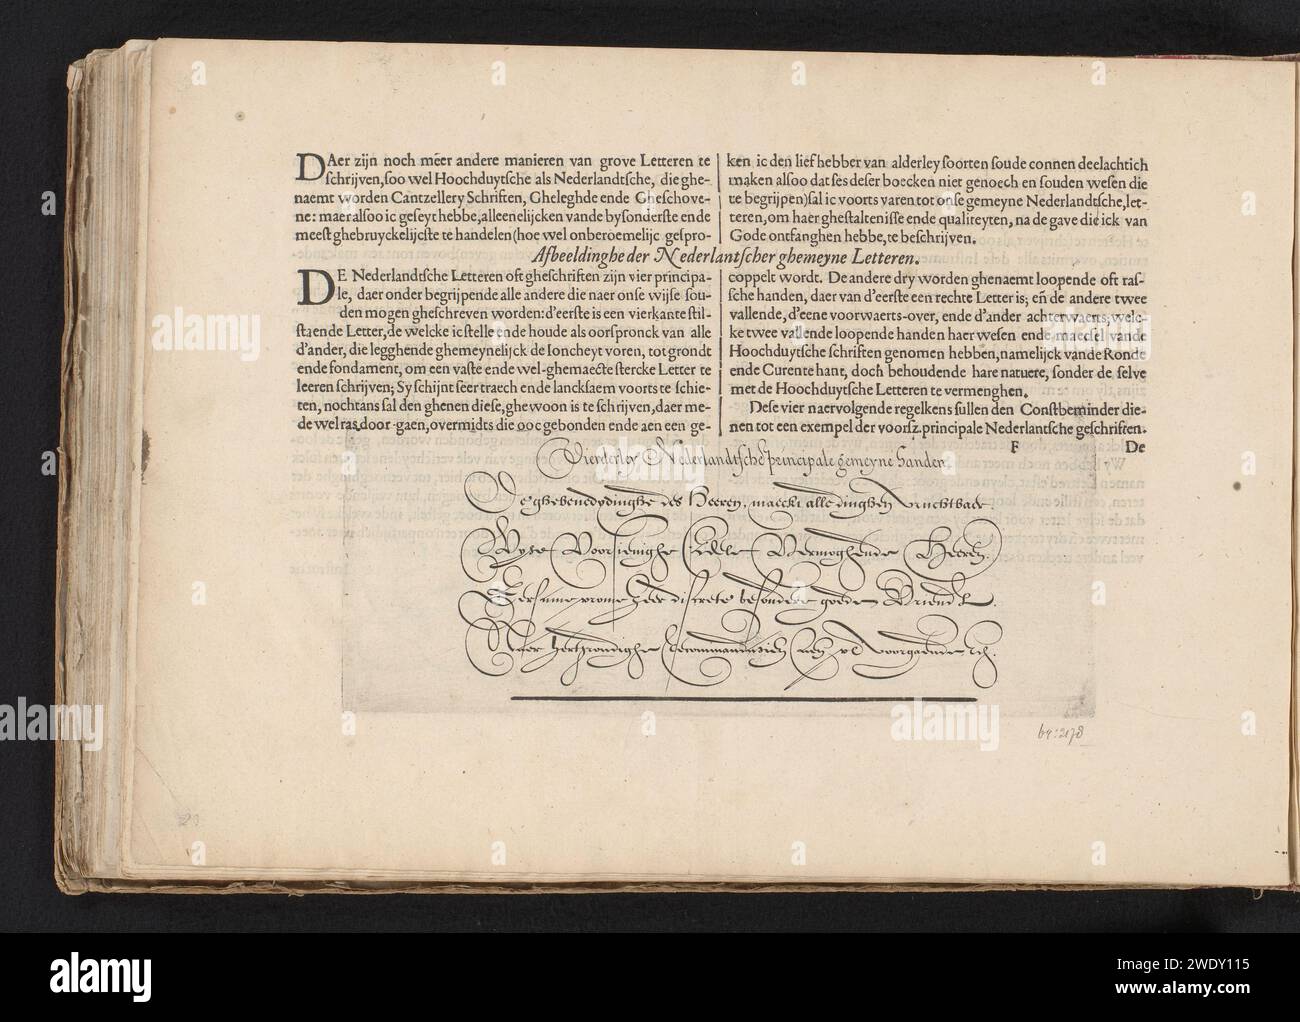 DAer zijn noch mëer andere manieren van grove Letteren te
ſchrijven, ſoo wel Hoochduytſche als Nederlandtſche, die ghe-
naemt worden Cantzellery Schriften, Gheleghde ende Gheſchove-
ne: maer alſoo ic geſeyt hebbe, alleenelijcken vande byſonderſte ende
meeſt ghebruyckelijcſte te handelen (hoe wel onberoemelijc geſpro-
ken ic den liefhebber van alderley ſoorten ſoude connen deelachtich
maken alſoo dat ſes deſer boecken niet genoech en ſouden weſen die
te begrijpen) ſal ic voorts varen tot onſe gemeyne Nederlandtſche, let-
teren, om haer gheſtalteniſſe ende qualiteyten, na de gave die ick van
Gode ontfanghen hebbe, te beſchrijven.
Afbeeldinghe der Nederlantſcher ghemeyne Letteren.
DE Nederlandtſche Letteren oft gheſchriften zijn vier principa-
le, daer onder begrijpende alle andere die naer onſe wijſe ſou-
den mogen gheſchreven worden: d'eerſte is een vierkante ſtil-
ſtaende Letter, de welcke ic ſtelle ende houde als oorſpronck van alle
d'ander, die legghende ghemeynelijck de Ioncheyt voren, tot grondt
ende fondament, om een vaſte ende wel-ghemaecte ſtercke Letter te
leeren ſchrijven; Sy ſchijnt ſeer traech ende lanckſaem voorts te ſchie-
ten, nochtans ſal den ghenen dieſe, ghewoon is te ſchrijven, daer me-
de wel ras door-gaen, overmidts die ooc gebonden ende aen een ge-
coppelt wordt. De andere dry worden ghenaemt loopende oft raſ-
ſche handen, daer van d'eerſte een rechte Letter is; en̄ de andere twee
vallende, d'eene voorwaerts-over, ende d'ander achterwaerts; welc-
ke twee vallende loopende handen haer weſen ende maecſel vande
Hoochduytſche ſchriften genomen hebben, namelijck vande Ronde
ende Curente hant, doch behoudende hare natuere, ſonder de ſelve
met de Hoochduytſche Letteren te vermenghen.
Deſe vier naervolgende regelkens ſullen den Conſtbeminder die-
nen tot een exempel der voorſz. principale Nederlantſche geſchriften.
F De
Vierderley Nederlandtſche principale gemeyne handen.
De ghebenedydinghe des Heeren, maeckt alle dinghen vruchtbaer
Wyse Voorsienighe Edele Vermoghende Heeren
Eersame vrome zeer discrete besondere goede Vriendt
Naer hertgrondighe Recommandatien
Voorgaende
br:2178
23
alamy
Image ID: 2WDY115
www.alamy.com